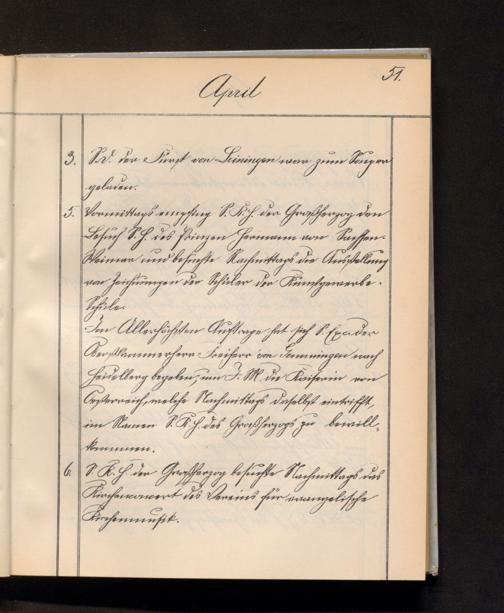 51.
April
3. S.D. der Fürst von Leiningen war zum Souper
geladen.
5. Vormittags empfing S.K.H. der Großherzog den
Besuch S.H. des Prinzen Hermann von Sachsen-
Weimar und besuchte Nachmittags die Ausstellung
von Zeichnungen der Schüler der Kunstgewerbe-
Schule.
Im Allerhöchsten Auftrage hat sich S. Exc. der
Oberstkammerherr Freiherr von Gemmingen nach
Heidelberg begeben, um I.M. die Kaiserin von
Oesterreich, welche Nachmittags daselbst eintrifft,
im Namen S.K.H. des Großherzogs zu bewill-
kommnen.
6. S.K.H. der Großherzog besuchte Nachmittags das
Kirchenconcert des Vereins für evangelische
Kirchenmusik.